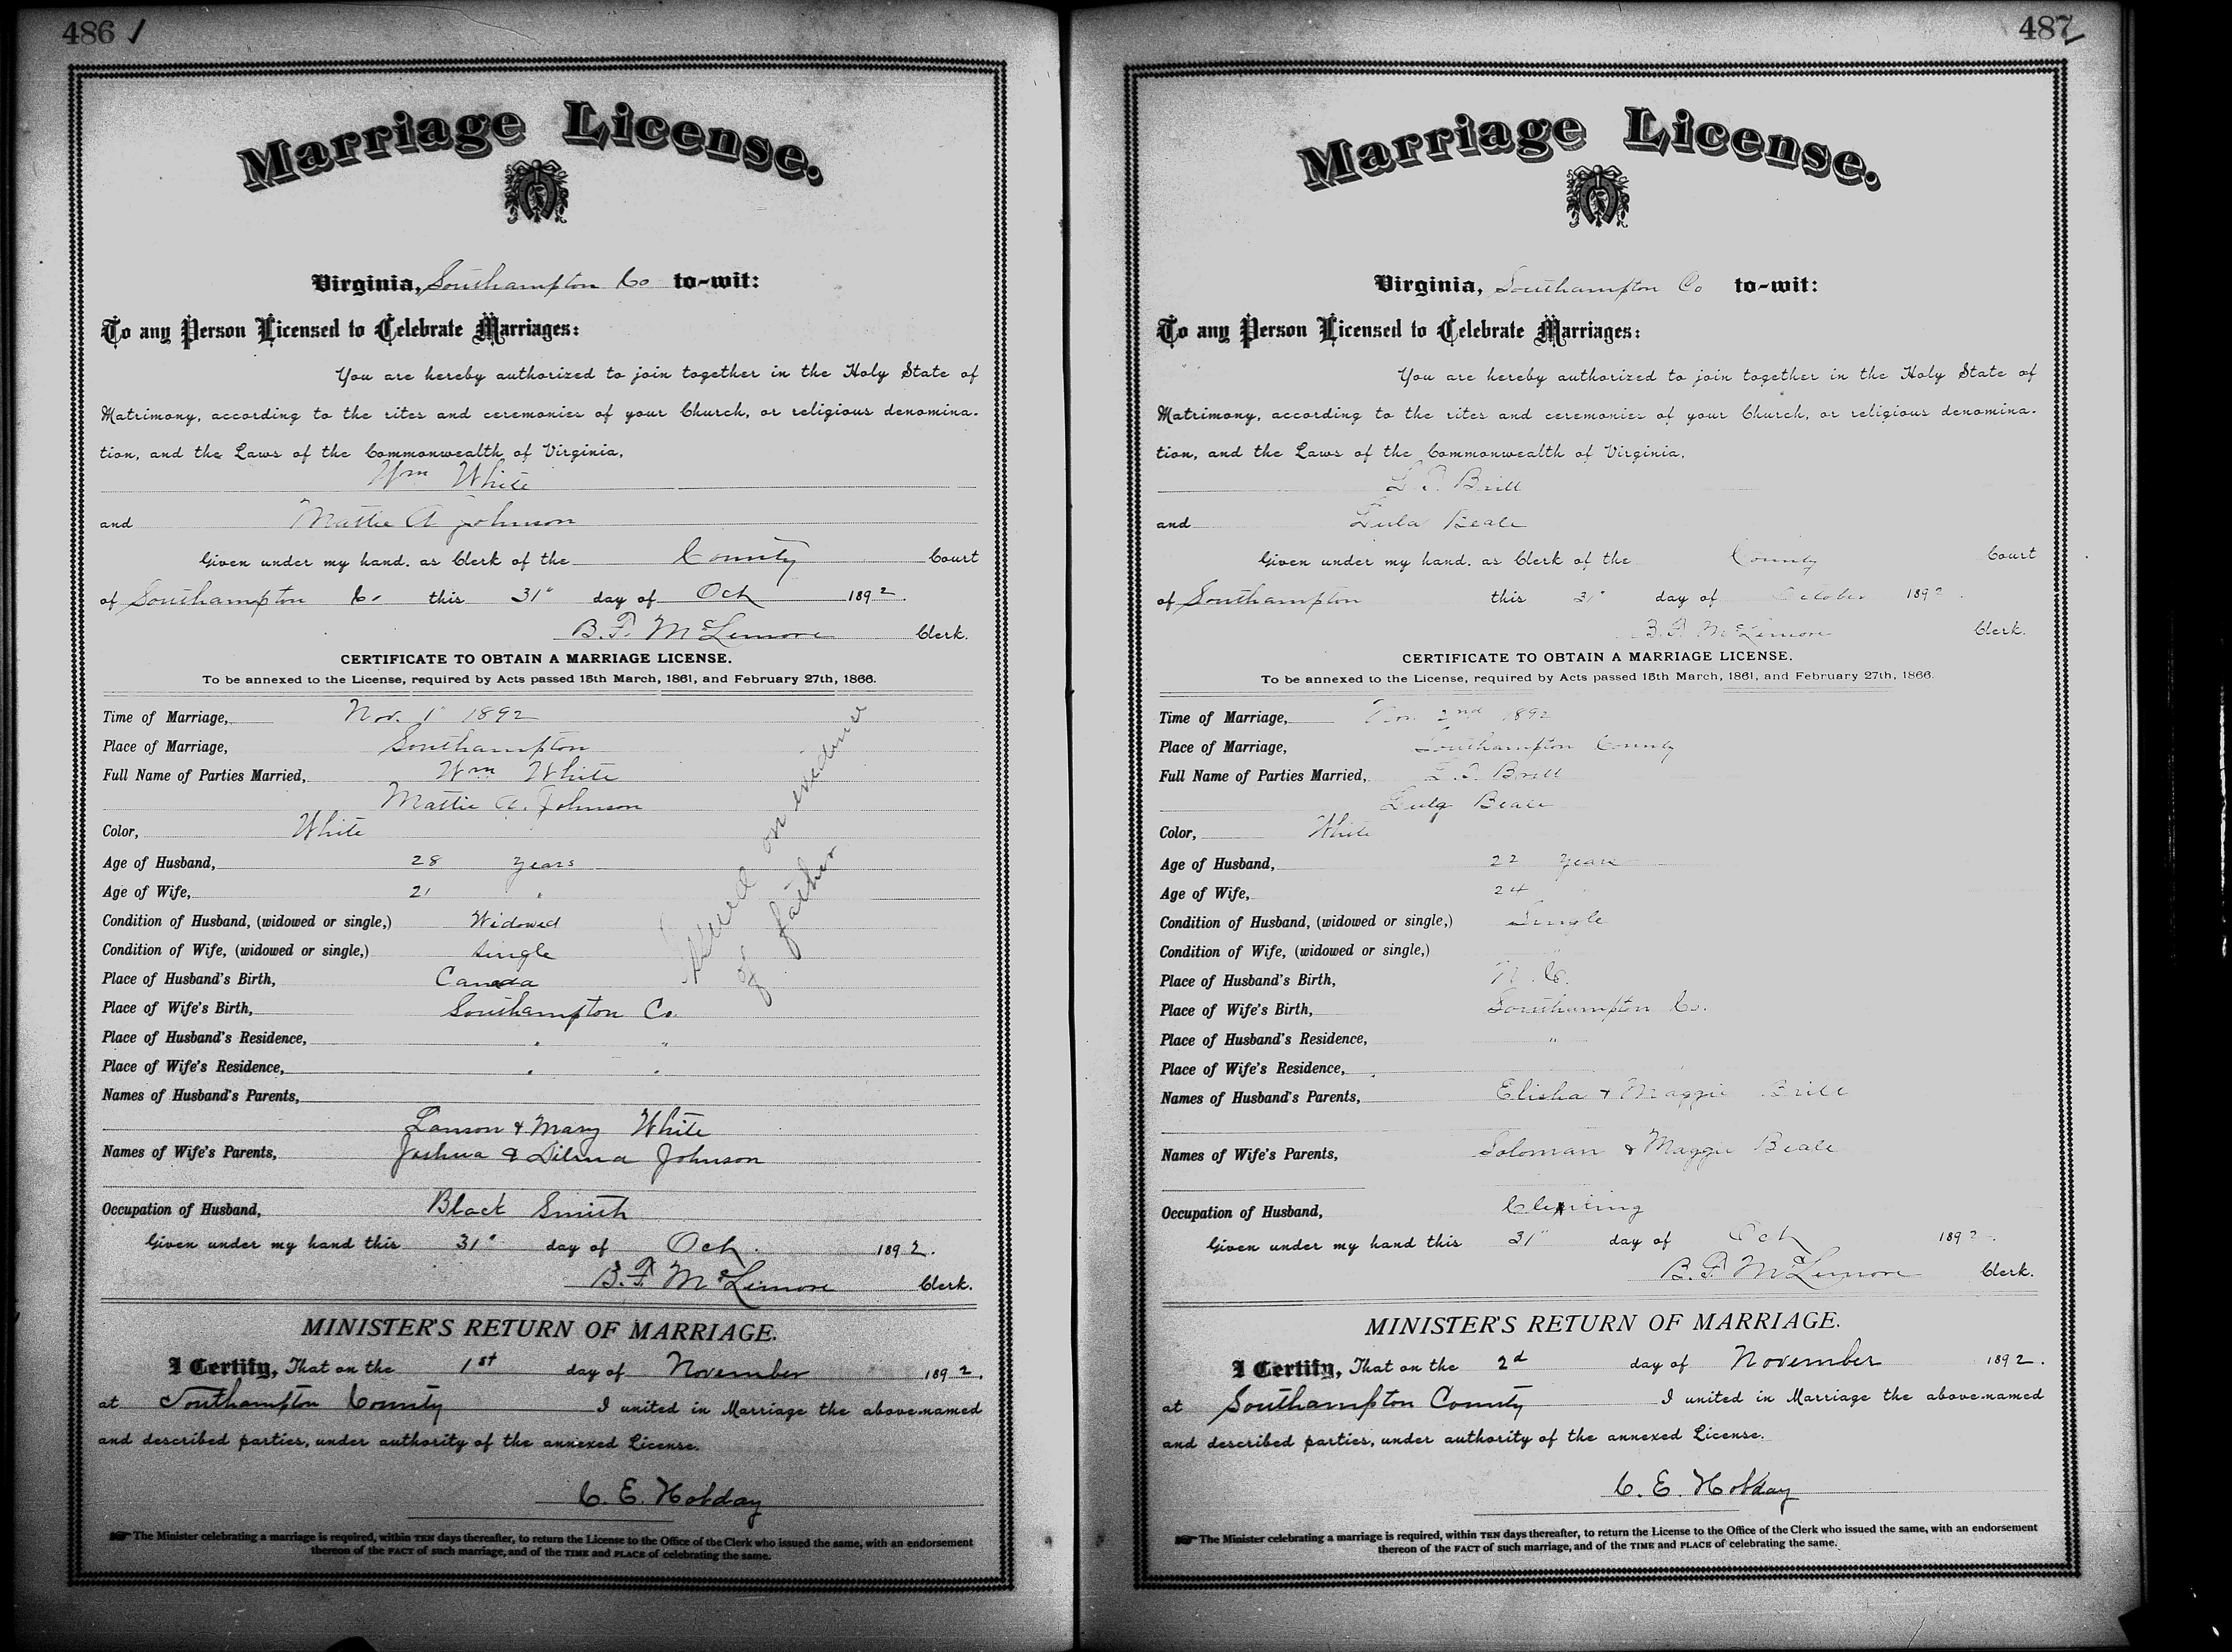 486
Marriage License.
Virginia, Southampton Co to-wit:
To any Person Licensed to Celebrate Marriages:
You are hereby authorized to join together in the Holy State of
Matrimony, according to the rites and ceremonies of your Church, or religious denomina-
tion, and the Laws of the Commonwealth of Virginia,
Wm White
and Mattie A Johnson
Given under my hand, as Clerk of the County Court
of Southampton Co this 31" day of Oct 1892.
B. F. McLemore Clerk.
CERTIFICATE TO OBTAIN A MARRIAGE LICENSE.
To be annexed to the License, required by Acts passed 15th March, 1861, and February 27th, 1866.
Time of Marriage, Nov. 1" 1892
Place of Marriage, Southampton
Full Name of Parties Married, Wm White
Mattie A. Johnson
Color, White
Age of Husband, 28 years
Age of Wife, 21 "
Condition of Husband, (widowed or single,) Widowed
Condition of Wife, (widowed or single,) Single
Place of Husband's Birth, Canada
Place of Wife's Birth, Southampton Co.
Place of Husband's Residence, " "
Place of Wife's Residence, " "
Names of Husband's Parents,
Lanson & Mary White
Names of Wife's Parents, Joshua & Johnson
Occupation of Husband, Black Smith
Given under my hand this 31" day of Oct. 1892.
B. F. McLemore Clerk.
Issued on evidence
of father
MINISTER'S RETURN OF MARRIAGE.
I Certify, That on the 1st day of November 1892.
at Southampton County I united in Marriage the above-named
and described parties, under authority of the annexed License.
C. E. Hobday
The Minister celebrating a marriage is required, within TEN days thereafter, to return the License to the Office of the Clerk who issued the same, with an endorsement
thereon of the FACT of such marriage, and of the TIME and PLACE of celebrating the same.
487
Marriage License.
Virginia, Southampton Co to-wit:
To any Person Licensed to Celebrate Marriages:
You are hereby authorized to join together in the Holy State of
Matrimony, according to the rites and ceremonies of your Church, or religious denomina-
tion, and the Laws of the Commonwealth of Virginia,
Brill
and Lula Beale
Given under my hand, as Clerk of the County Court
of Southampton this 31" day of October 1892.
B. F. McLemore Clerk.
CERTIFICATE TO OBTAIN A MARRIAGE LICENSE.
To be annexed to the License, required by Acts passed 15th March, 1861, and February 27th, 1866.
Time of Marriage, Nov. 2nd 1892
Place of Marriage, Southampton County
Full Name of Parties Married, Brill
Lula Beale
Color, White
Age of Husband, 22 years
Age of Wife, 24 "
Condition of Husband, (widowed or single,) Single
Condition of Wife, (widowed or single,) "
Place of Husband's Birth, N. C.
Place of Wife's Birth, Southampton Co.
Place of Husband's Residence, "
Place of Wife's Residence,
Names of Husband's Parents, Elisha & Maggie Brill
Names of Wife's Parents, Soloman & Maggie Beale
Occupation of Husband,
Given under my hand this 31" day of Oct 1892.
B. F. McLemore Clerk.
MINISTER'S RETURN OF MARRIAGE.
I Certify, That on the 2d day of November 1892.
at Southampton County I united in Marriage the above-named
and described parties, under authority of the annexed License.
C. E. Hobday
The Minister celebrating a marriage is required, within TEN days thereafter, to return the License to the Office of the Clerk who issued the same, with an endorsement
thereon of the FACT of such marriage, and of the TIME and PLACE of celebrating the same.